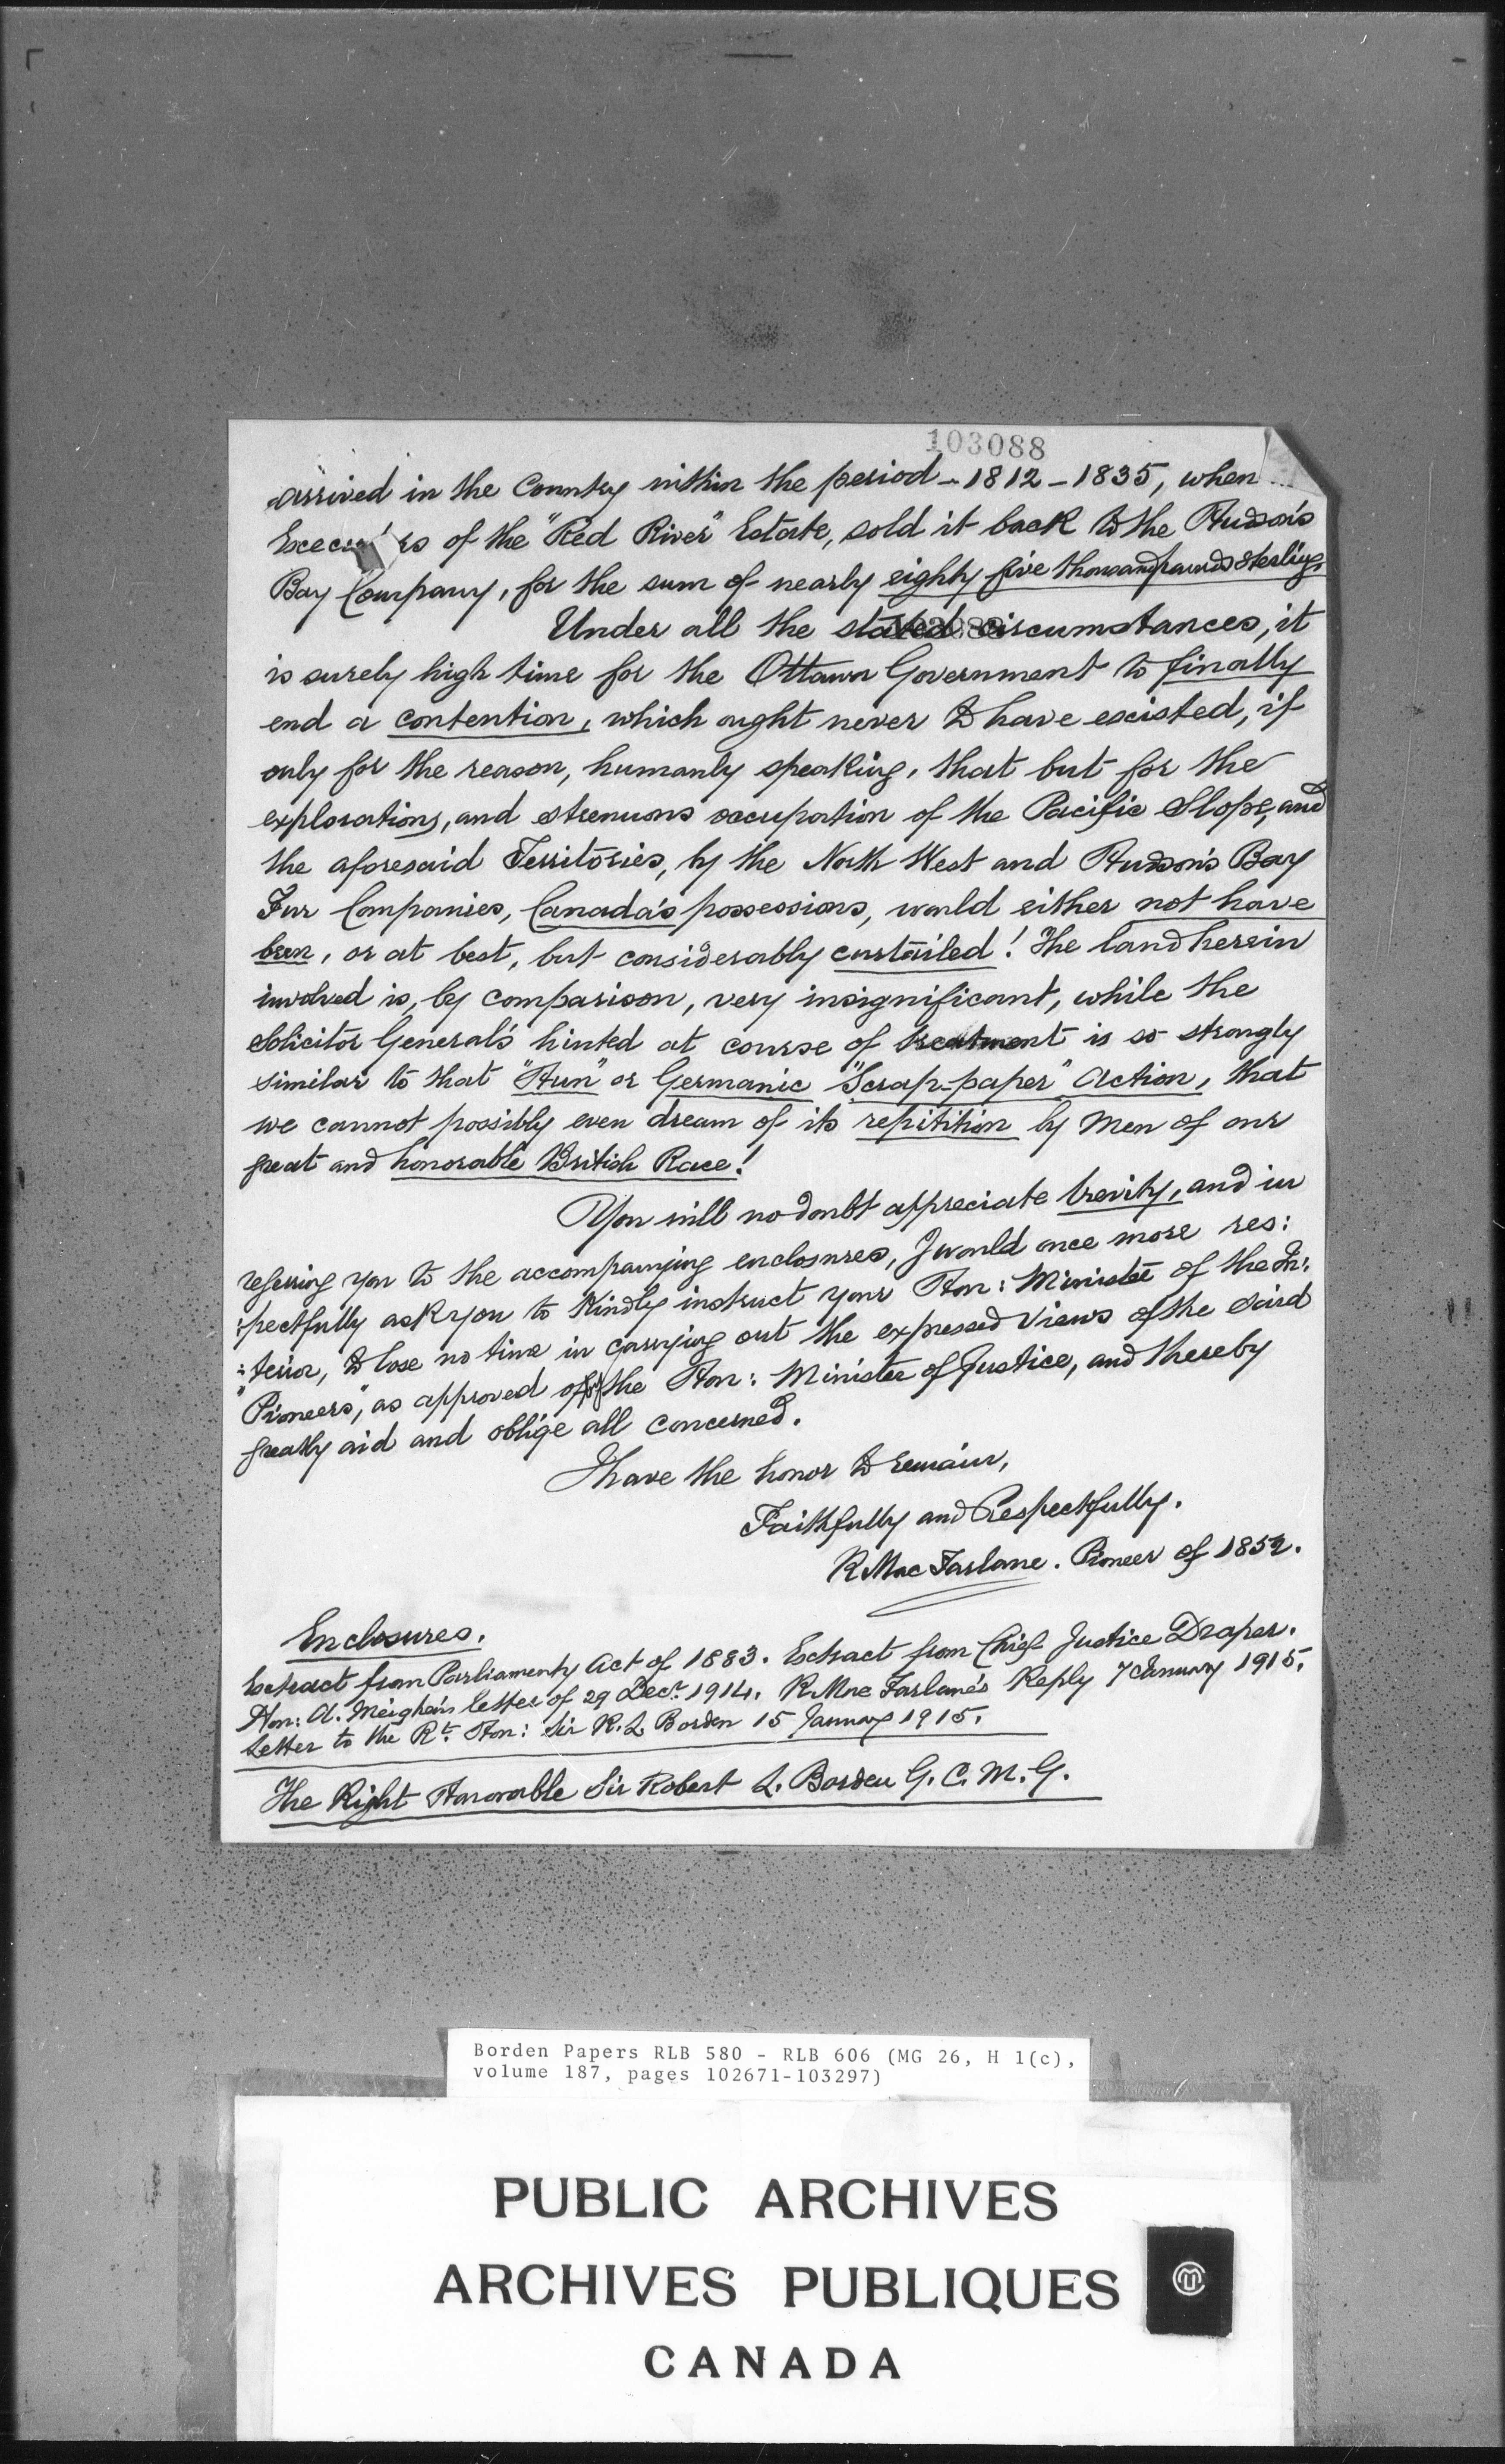 103088
arrived in the Country within the period - 1812 - 1835, when
of the "Red River" Estate, sold it back to the Hudson's
Bay Company, for the sum of nearly eighty five thousand pounds Sterling.
Under all the stated circumstances, it
is surely high time for the Ottawa Government to finally
end a contention, which ought never to have existed, if
only for the reason, humanly speaking, that but for the
explorations, and strenuous occupation of the Pacific Slope, and
the aforesaid Territories, by the North West and Hudson's Bay
Fur Companies, Canada's possessions, would either not have
been, or at best, but considerably curtailed! The land herein
involved is, by comparison, very insignificant, while the
Solicitor General's hinted at course of treatment is so strongly
similar to that "Hun" or Germanic "Scrap-paper" Action, that
we cannot possibly even dream of its repitition by Men of our
great and honorable British Race!
You will no doubt appreciate brevity, and in
refering you to the accompanying enclosures, I would once more res:
:pectfully ask you to Kindly instruct your Hon: Minister of the In:
:terior, to lose no time in carrying out the expressed views of the said
"Pioneers", as approved of by the Hon: Minister of Justice, and thereby
greatly aid and oblige all concerned.
I have the honor to remain,
Faithfully and Respectfully.
R Mac Farlane. Pioneer of 1852.
Enclosures.
Extract from Parliamenty Act of 1883. Extract from Chief Justice Draper.
Hon: A. Meighen's letter of 29 Decr. 1914. R. Mac Farlane's Reply 7 January 1915.
Letter to the Rt. Hon: Sir R. L. Borden 15 January 1915.
The Right Honorable Sir Robert L. Borden G. C. M. G.
Borden Papers RLB 580 - RLB 606 (MG 26, H 1(c),
volume 187, pages 102671-103297)
PUBLIC ARCHIVES
ARCHIVES PUBLIQUES
CANADA